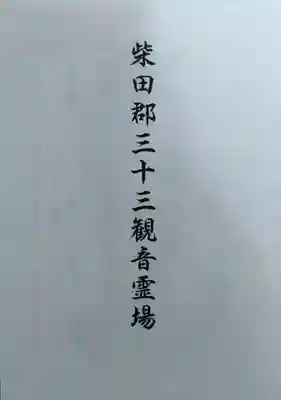 柴田郡三十三観音霊場